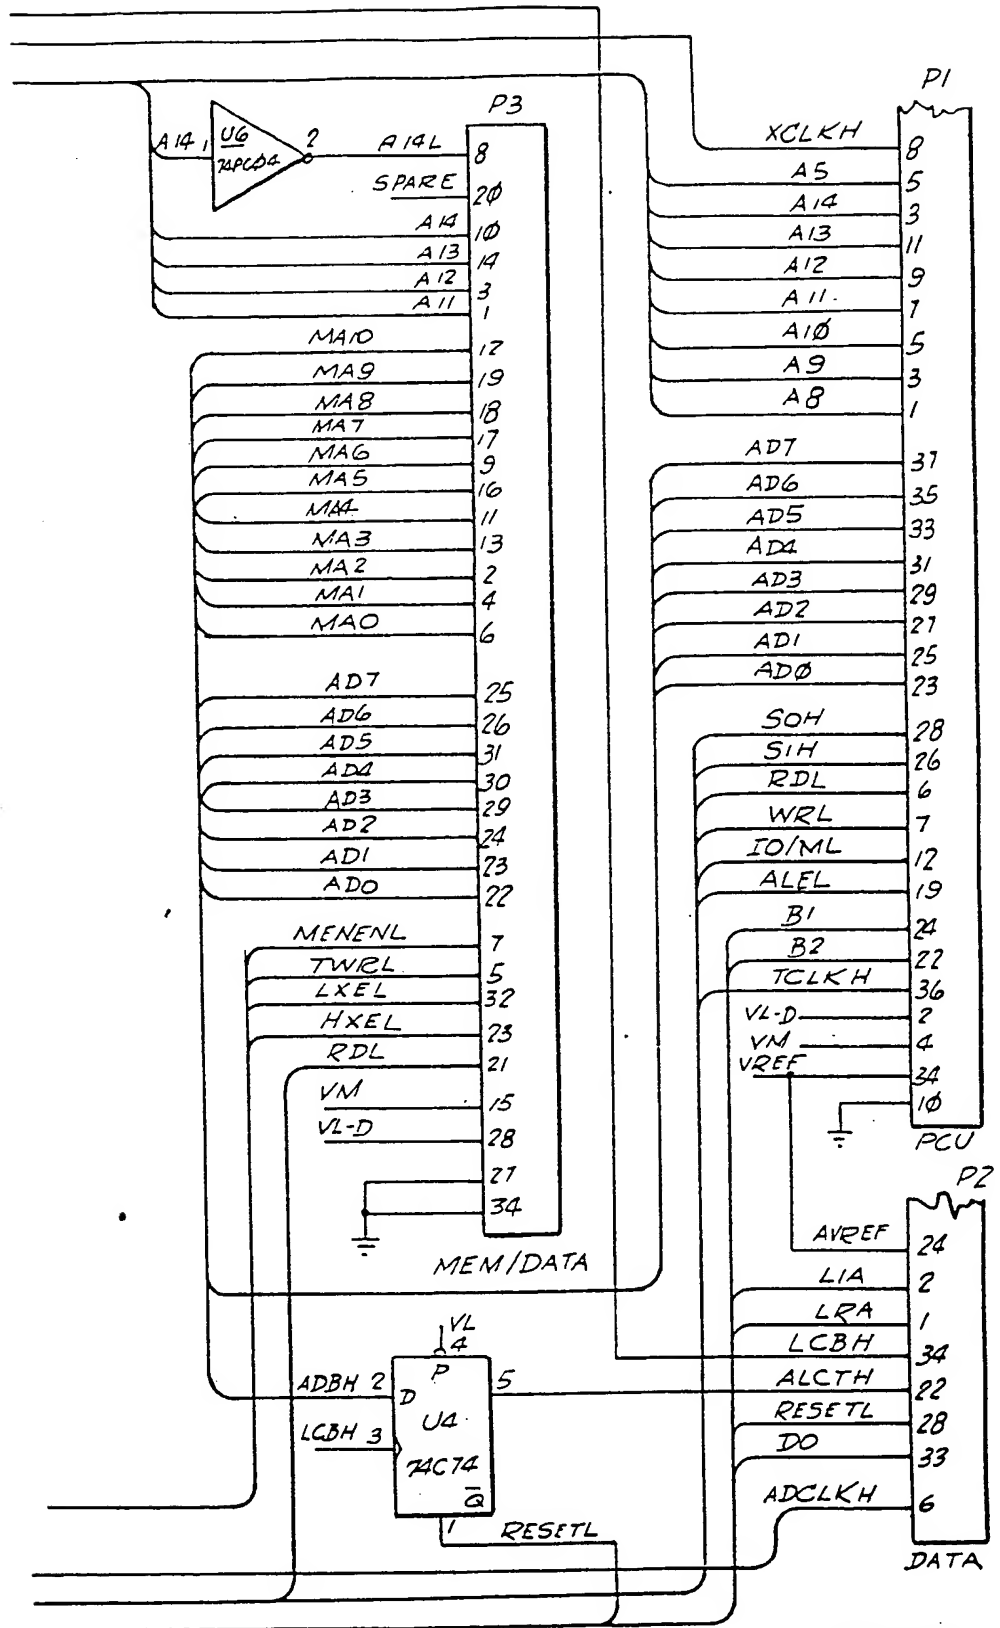 P3
A14 1 U6 2 A14L 8
74PCØ4
SPARE 2Ø
A14 1Ø
A13 14
A12 3
A11 1
MA10 12
MA9 19
MA8 18
MA7 17
MA6 9
MA5 16
MA4 11
MA3 13
MA2 2
MA1 4
MA0 6
AD7 25
AD6 26
AD5 31
AD4 30
AD3 29
AD2 24
AD1 23
AD0 22
MENENL 7
TWRL 5
LXEL 32
HXEL 23
RDL 21
VM 15
VL-D 28
27
34
MEM/DATA
P1
XCLKH 8
A5 5
A14 3
A13 11
A12 9
A11 7
A1Ø 5
A9 3
A8 1
AD7 37
AD6 35
AD5 33
AD4 31
AD3 29
AD2 27
AD1 25
ADØ 23
SOH 28
S1H 26
RDL 6
WRL 7
IO/ML 12
ALEL 19
B1 24
B2 22
TCLKH 36
VL-D 2
VM 4
VREF 34
1Ø
PCU
P2
AVREF 24
LIA 2
LRA 1
LCBH 34
ALCTH 22
RESETL 28
DO 33
ADCLKH 6
DATA
VL
4
P
ADBH 2 D 5
U4
LCBH 3
74C74
Q̅
1
RESETL